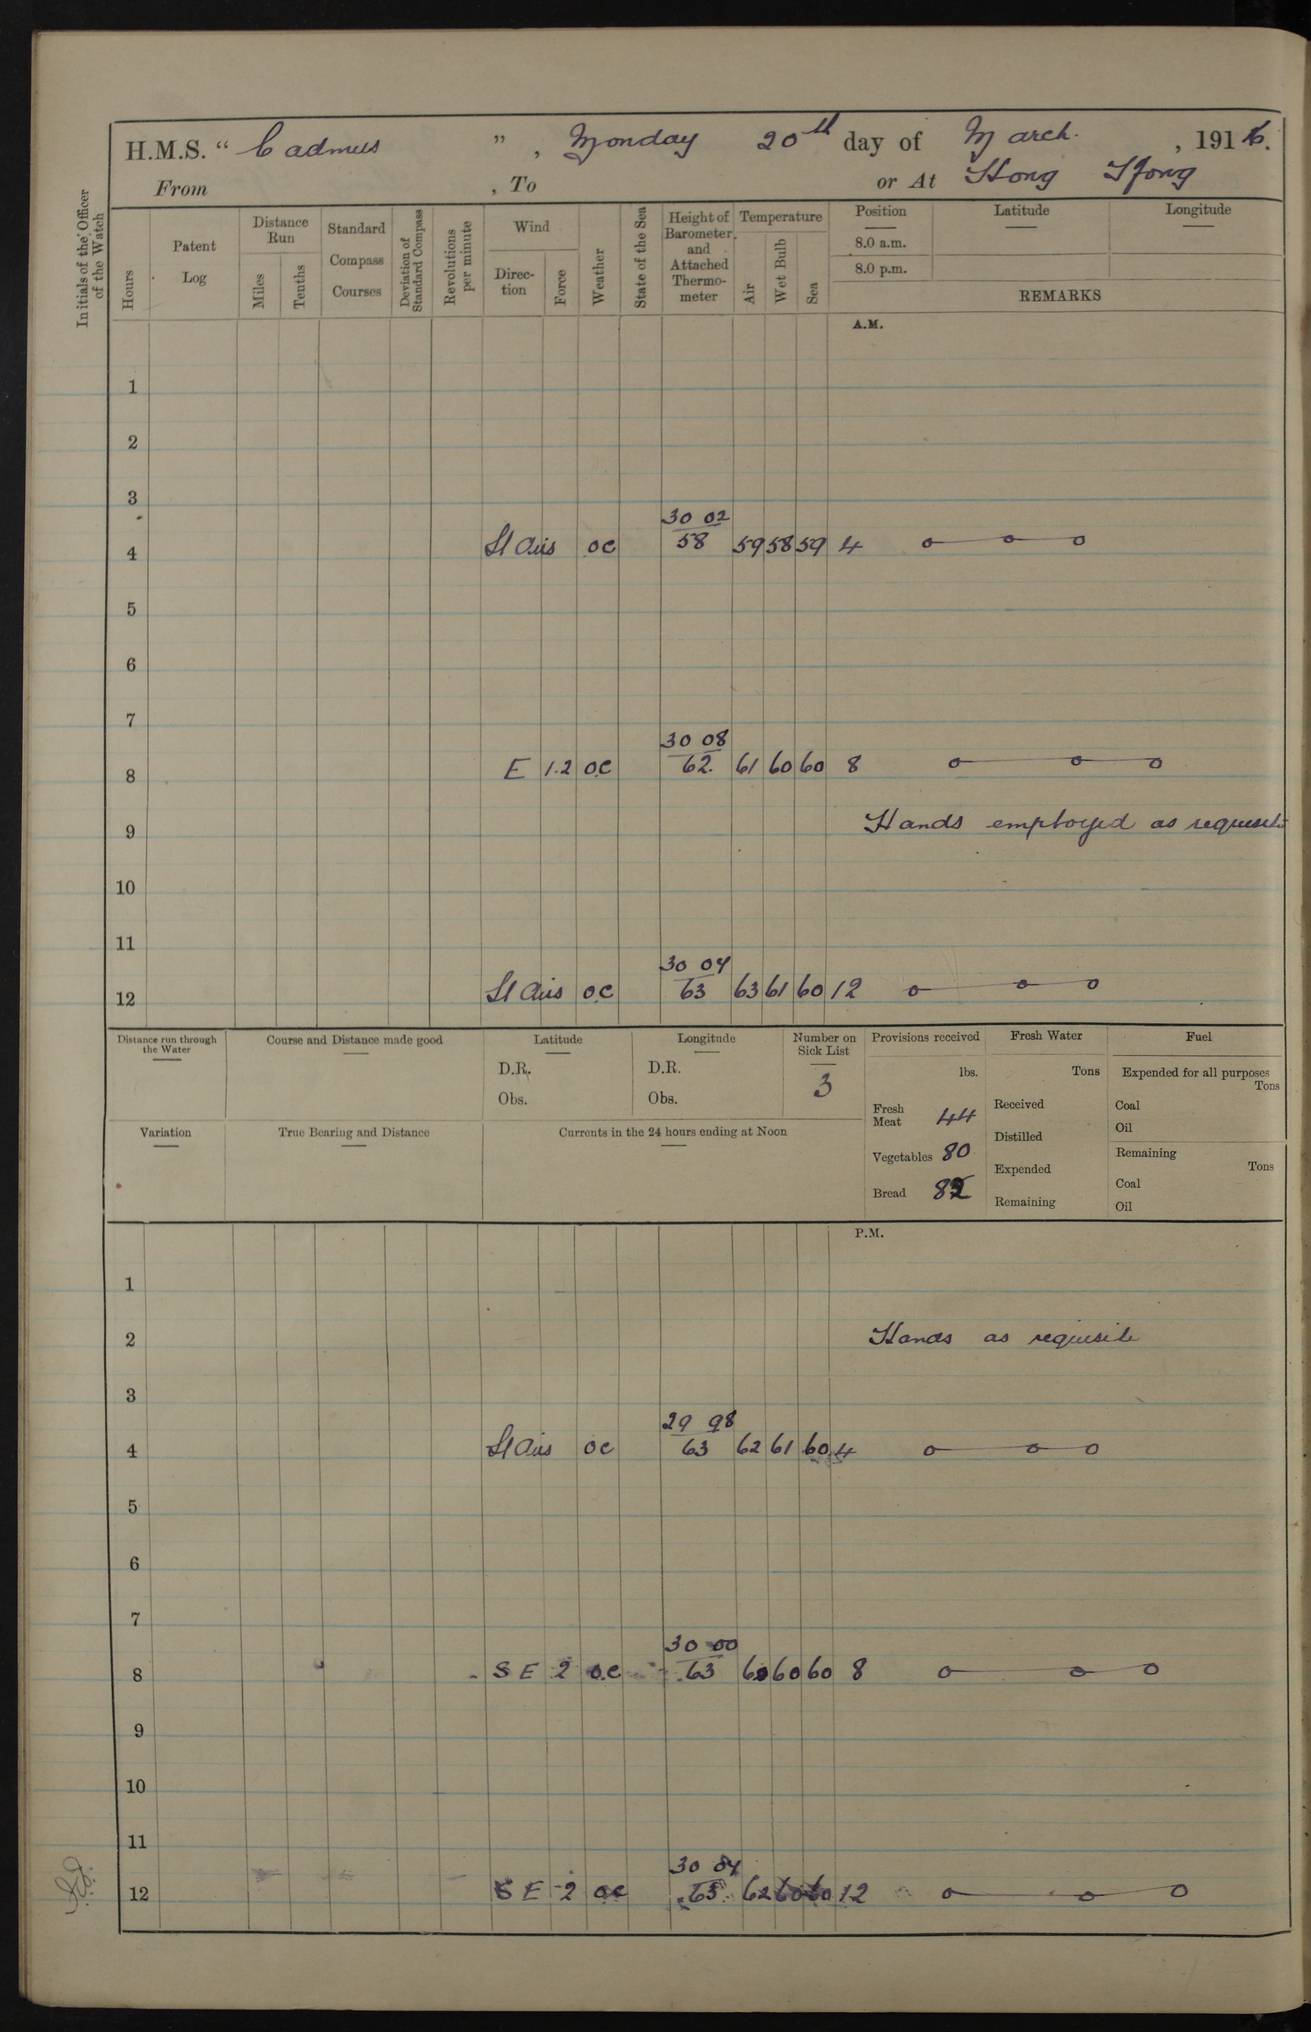 H.M.S. “ Cadmus ” , Monday 20th day of March. , 1916.
From , To or At Hong Kong
Initials of the Officer of the Watch
Hours
Patent Log
Distance Run
Miles
Tenths
Standard Compass Courses
Deviation of Standard Compass
Revolutions per minute
Wind
Direc-tion
Force
Weather
State of the Sea
Height of Barometer and Attached Thermo-meter
Temperature
Air
Wet Bulb
Sea
Position
8.0 a.m.
8.0 p.m.
Latitude
Longitude
REMARKS
A.M.
1
2
3
30 02
4 Lt Airs oc 58 59 58 59 4
5
6
7
30 08
8 E 1.2 oc 62. 61 60 60 8
9 Hands employed as requisite
10
11
30 04
12 Lt Airs oc 63 63 61 60 12
Distance run through the Water
Course and Distance made good
Latitude
D.R.
Obs.
Longitude
D.R.
Obs.
Number on Sick List
3
Variation
True Bearing and Distance
Currents in the 24 hours ending at Noon
Provisions received
lbs.
Fresh Meat 44
Vegetables 80
Bread 82
Fresh Water
Tons
Received
Distilled
Expended
Remaining
Fuel
Expended for all purposes
Tons
Coal
Oil
Remaining
Tons
Coal
Oil
P.M.
1
2 Hands as requisite
3
29 98
4 Lt Airs oc 63 62 61 60 4
5
6
7
30 00
8 S E 2 oc 63 60 60 60 8
9
10
11
30 04
12 S E 2 oc 63 62 60 60 12